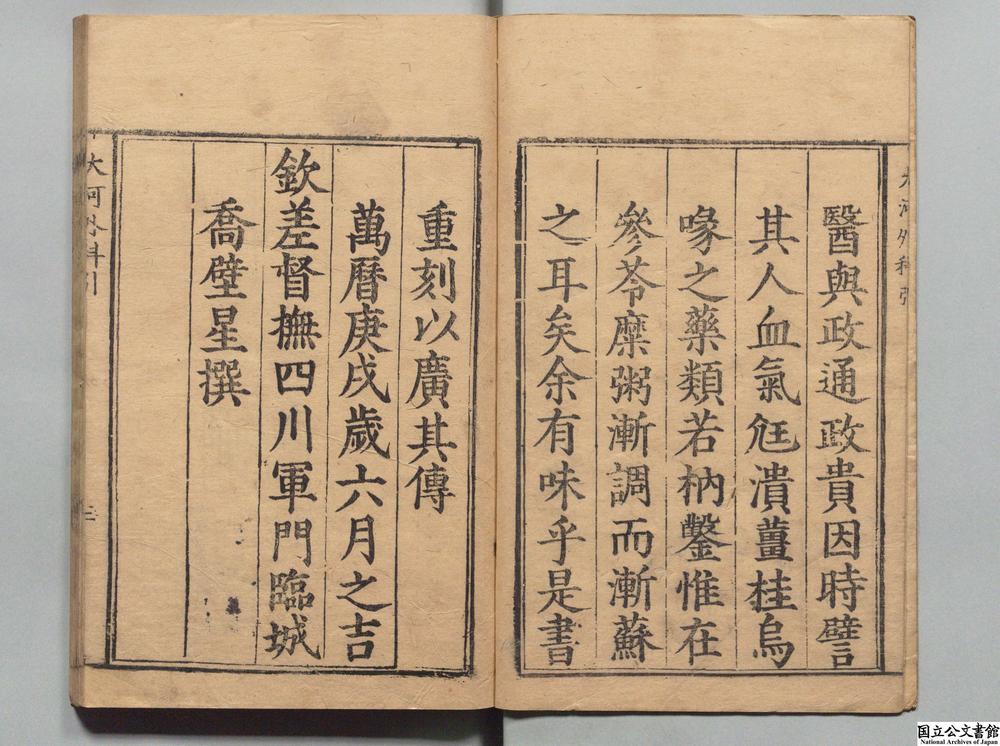 醫與政通政貴因時譬
其人血氣尫潰薑桂烏
喙之藥類若枘鑿惟在
參苓糜粥漸調而漸蘇
之耳矣余有味乎是書
重刻以廣其傳
萬曆庚戌歲六月之吉
欽差督撫四川軍門臨城
喬壁星撰
大河外科引
国立公文書館
National Archives of Japan